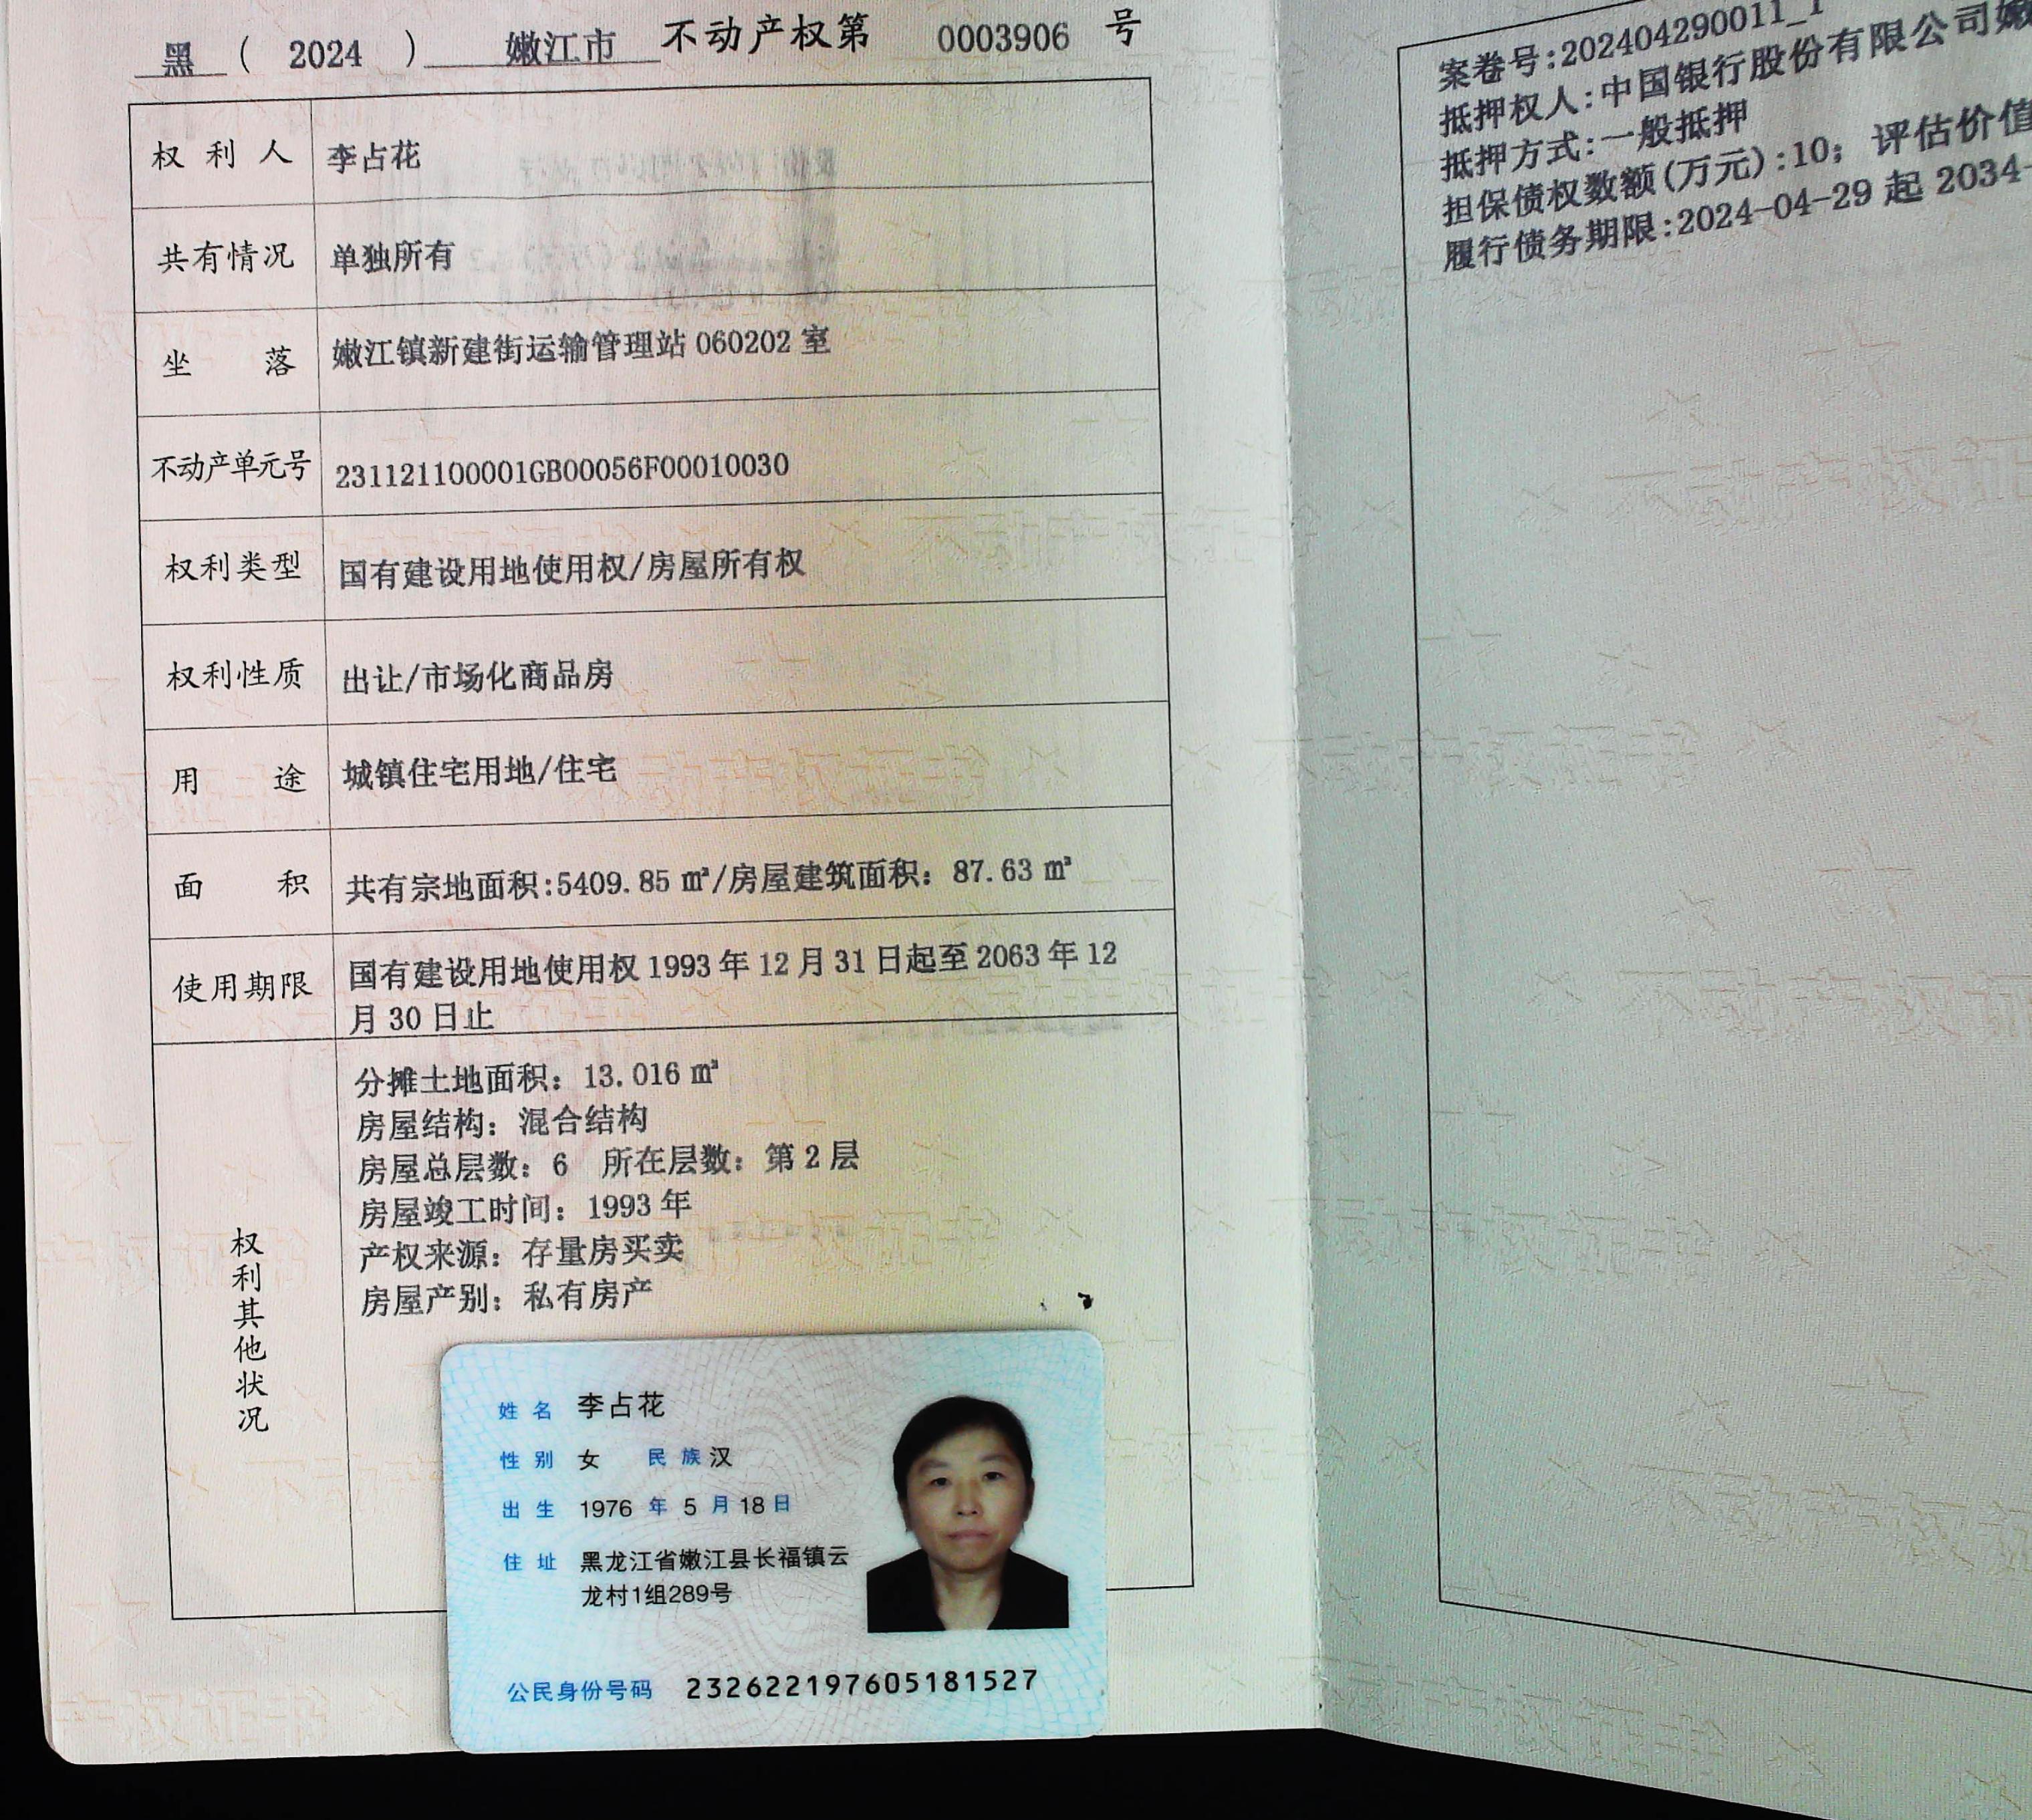 黑 ( 2024 ) 嫩江市 不动产权第 0003906 号
权利人 李占花
共有情况 单独所有
坐落 嫩江镇新建街运输管理站 060202 室
不动产单元号 231121100001GB00056F00010030
权利类型 国有建设用地使用权/房屋所有权
权利性质 出让/市场化商品房
用途 城镇住宅用地/住宅
面积 共有宗地面积:5409.85 ㎡/房屋建筑面积: 87.63 ㎡
使用期限 国有建设用地使用权 1993 年 12 月 31 日起至 2063 年 12
月 30 日止
权利其他状况
分摊土地面积: 13.016 ㎡
房屋结构: 混合结构
房屋总层数: 6 所在层数: 第 2 层
房屋竣工时间: 1993 年
产权来源: 存量房买卖
房屋产别: 私有房产
姓名 李占花
性别 女 民族 汉
出生 1976 年 5 月 18 日
住址 黑龙江省嫩江县长福镇云
龙村1组289号
公民身份号码 232622197605181527
案卷号:202404290011_1
抵押权人:中国银行股份有限公司嫩
抵押方式:一般抵押
担保债权数额(万元):10; 评估价值
履行债务期限:2024-04-29 起 2034-